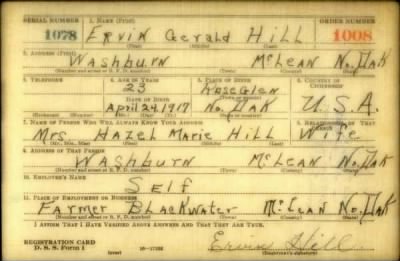 SERIAL NUMBER 1. NAME (Print) ORDER NUMBER
1078 ERVIN Gerald Hill 1008
(First) (Middle) (Last)
2. ADDRESS (Print)
Washburn McLean No. Dak
(Number and street or R. F. D. number) (Town) (County) (State)
3. TELEPHONE 4. AGE IN YEARS 5. PLACE OF BIRTH 6. COUNTRY OF CITIZENSHIP
23 RoseGlen
DATE OF BIRTH (Town or county)
April 24 1917 No. Dak U.S.A.
(Exchange) (Number) (Mo.) (Day) (Yr.) (State or country)
7. NAME OF PERSON WHO WILL ALWAYS KNOW YOUR ADDRESS 8. RELATIONSHIP OF THAT PERSON
Mrs. Hazel Marie Hill Wife
(Mr., Mrs., Miss) (First) (Middle) (Last)
9. ADDRESS OF THAT PERSON
Washburn McLean No. Dak
(Number and street or R. F. D. number) (Town) (County) (State)
10. EMPLOYER'S NAME
Self
11. PLACE OF EMPLOYMENT OR BUSINESS
Farmer Blackwater McLean No. Dak
(Number and street or R. F. D. number) (Town) (County) (State)
I AFFIRM THAT I HAVE VERIFIED ABOVE ANSWERS AND THAT THEY ARE TRUE.
REGISTRATION CARD Ervin Hill
D. S. S. Form 1 (over) 16-17105 (Registrant's signature)